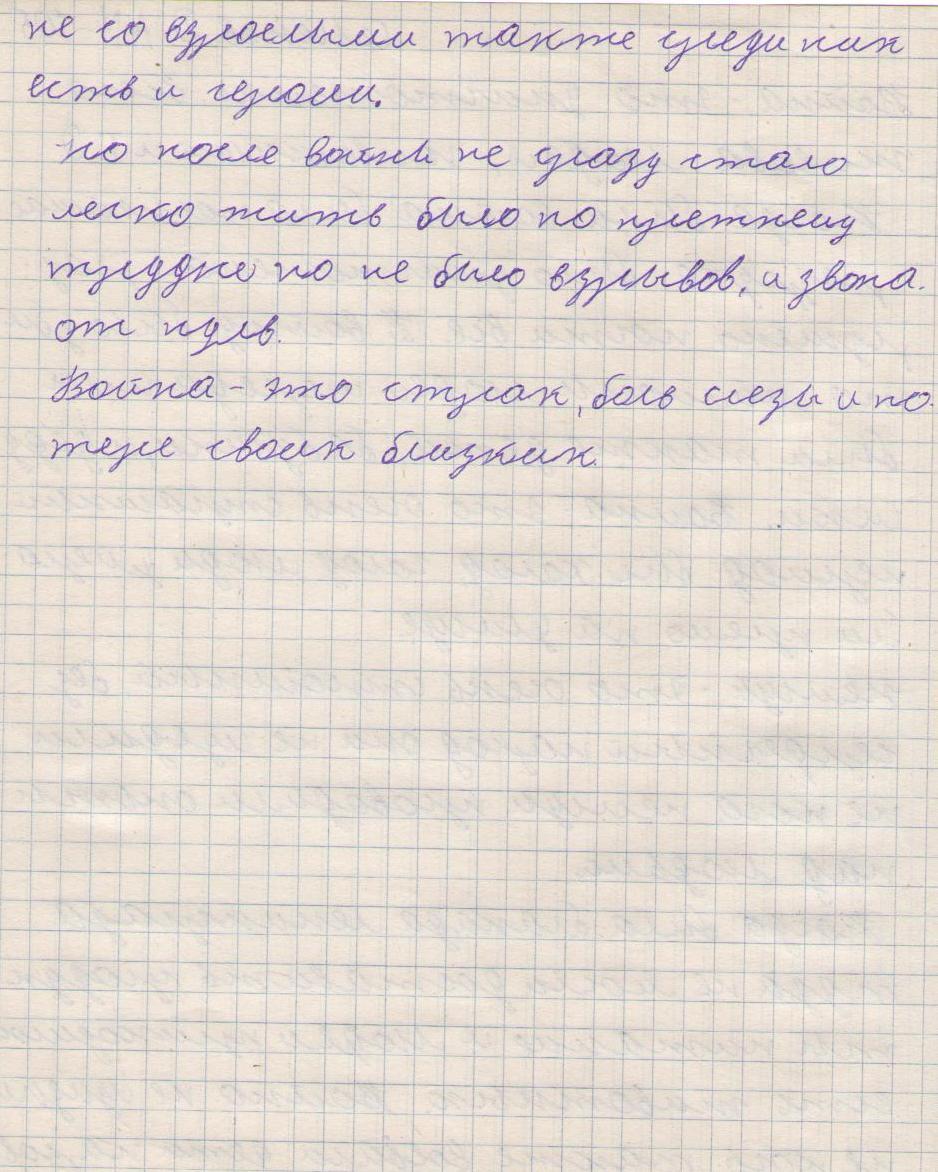 не со взрослыми также среди них
есть и герои.
но после войны не сразу стало
легко жить было по прежнему
трудно но не было взрывов, и звона.
от пуль.
Война - это страх, боль слезы и по
тере своих близких.